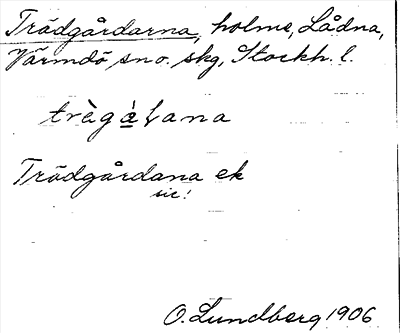 Trädgårdarna, holme, Lådna,
Värmdö sno. skg, Stockh. l.
trὰgα̣ḷana
Trädgårdana ek
sic!
O. Lundberg 1906